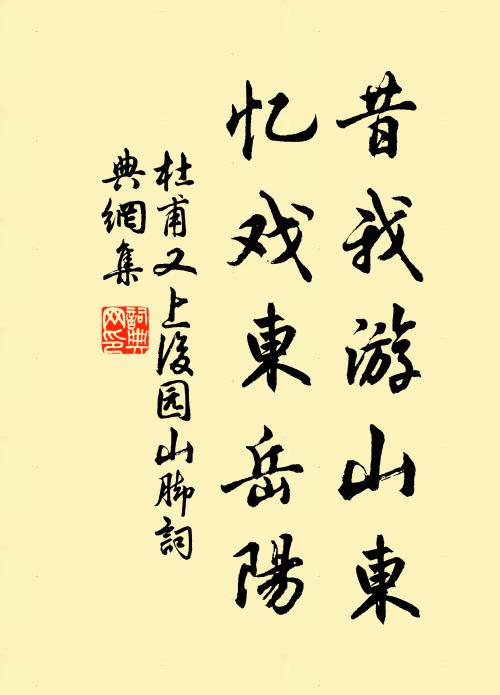 昔我游山東
忆戏東岳陽
杜甫又上後园山脚詞
典網集
詞典
网印